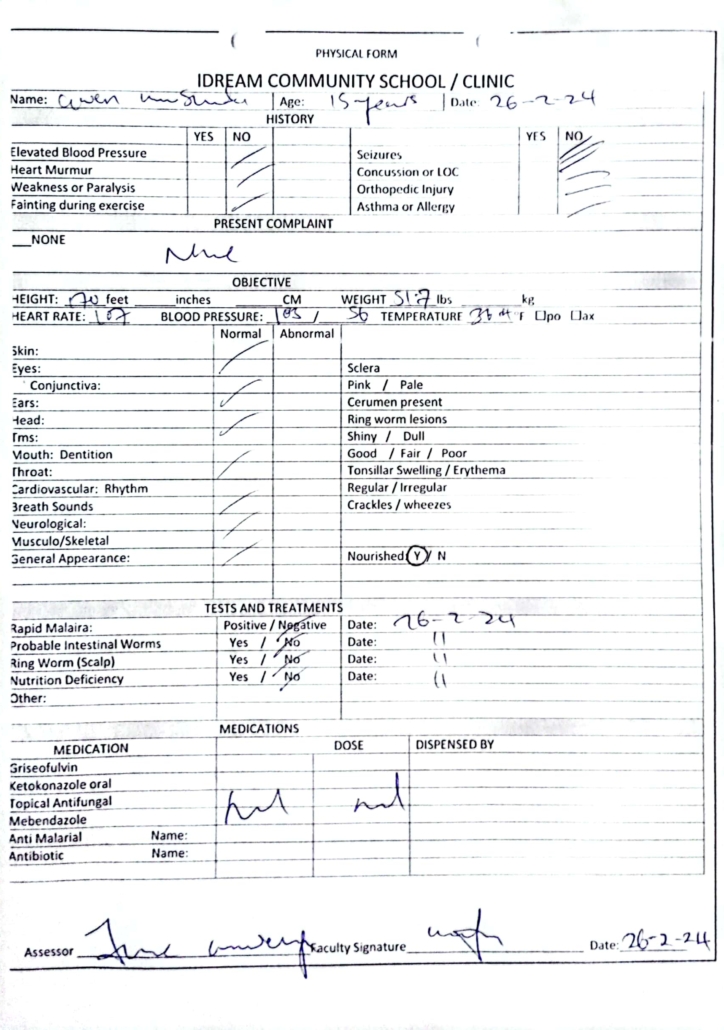 PHYSICAL FORM
IDREAM COMMUNITY SCHOOL / CLINIC
Name: Age: 15 years Date: 26-2-24
HISTORY
YES NO YES NO
Elevated Blood Pressure Seizures
Heart Murmur Concussion or LOC
Weakness or Paralysis Orthopedic Injury
Fainting during exercise Asthma or Allergy
PRESENT COMPLAINT
__NONE
OBJECTIVE
HEIGHT: feet inches CM WEIGHT 51.7 lbs kg
HEART RATE: 107 BLOOD PRESSURE: 103 / 56 TEMPERATURE F po ax
Normal Abnormal
Skin:
Eyes: Sclera
Conjunctiva: Pink / Pale
Ears: Cerumen present
Head: Ring worm lesions
Tms: Shiny / Dull
Mouth: Dentition Good / Fair / Poor
Throat: Tonsillar Swelling / Erythema
Cardiovascular: Rhythm Regular / Irregular
Breath Sounds Crackles / wheezes
Neurological:
Musculo/Skeletal
General Appearance: Nourished Y / N
TESTS AND TREATMENTS
Rapid Malaira: Positive / Negative Date: 26-2-24
Probable Intestinal Worms Yes / No Date: 11
Ring Worm (Scalp) Yes / No Date: 11
Nutrition Deficiency Yes / No Date: 11
Other:
MEDICATIONS
MEDICATION DOSE DISPENSED BY
Griseofulvin
Ketokonazole oral
Topical Antifungal nil nil
Mebendazole
Anti Malarial Name:
Antibiotic Name:
Assessor Faculty Signature Date: 26-2-24